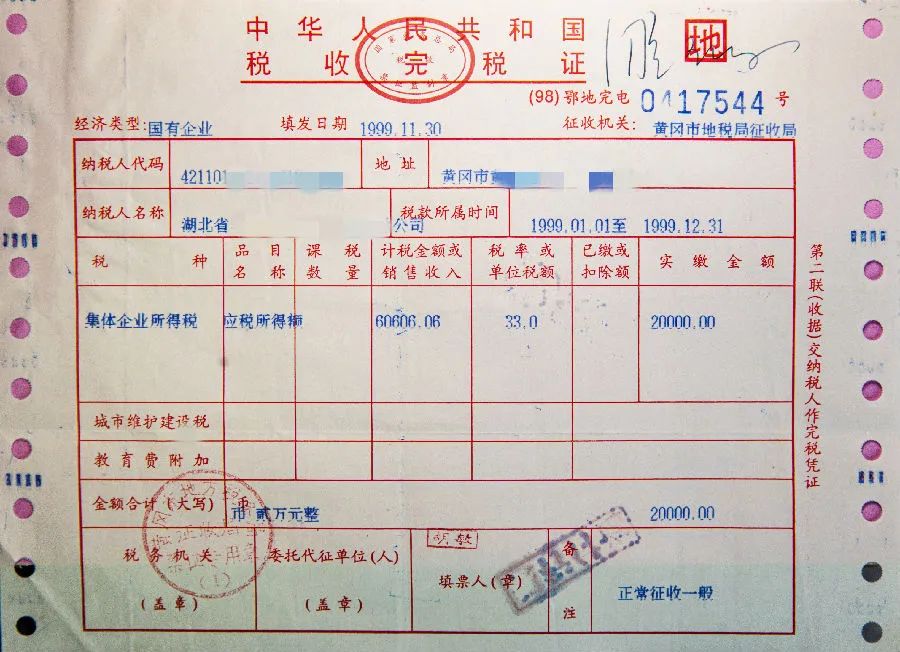 中华人民共和国
税收完税证
地
(98)鄂地完电 0417544 号
经济类型:国有企业 填发日期 1999.11.30 征收机关: 黄冈市地税局征收局
纳税人代码 421101 地址 黄冈市
纳税人名称 湖北省 公司 税款所属时间 1999.01.01至 1999.12.31
税种 品目名称 课税数量 计税金额或销售收入 税率或单位税额 已缴或扣除额 实缴金额
集体企业所得税 应税所得额 60606.06 33.0 20000.00
城市维护建设税
教育费附加
金额合计(大写) 币 币 贰万元整 20000.00
税务机关 委托代征单位(人) 填票人(章) 备注 正常征收一般
(盖章) (盖章)
第二联(收据)交纳税人作完税凭证